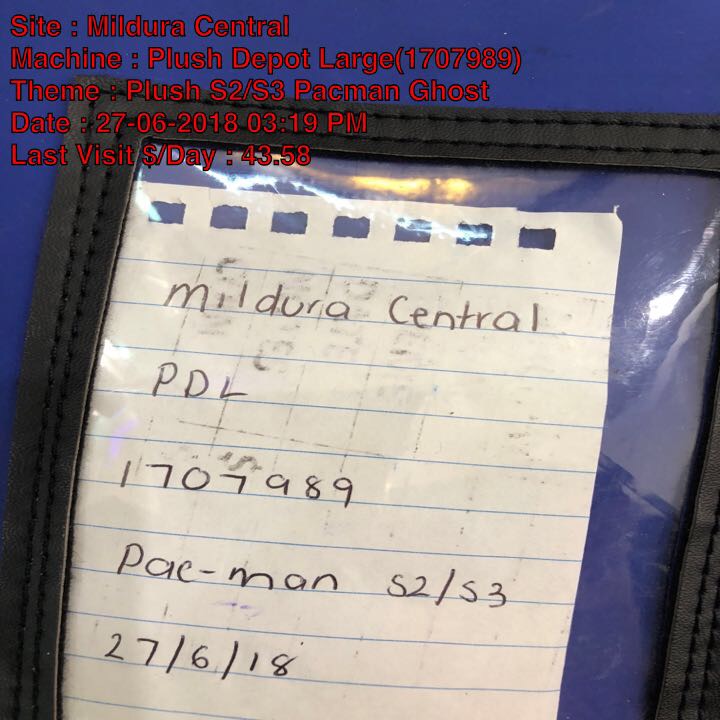 Site : Mildura Central
Machine : Plush Depot Large(1707989)
Theme : Plush S2/S3 Pacman Ghost
Date : 27-06-2018 03:19 PM
Last Visit $/Day : 43.58
Mildura Central
PDL
1707989
Pac-man S2/S3
27/6/18